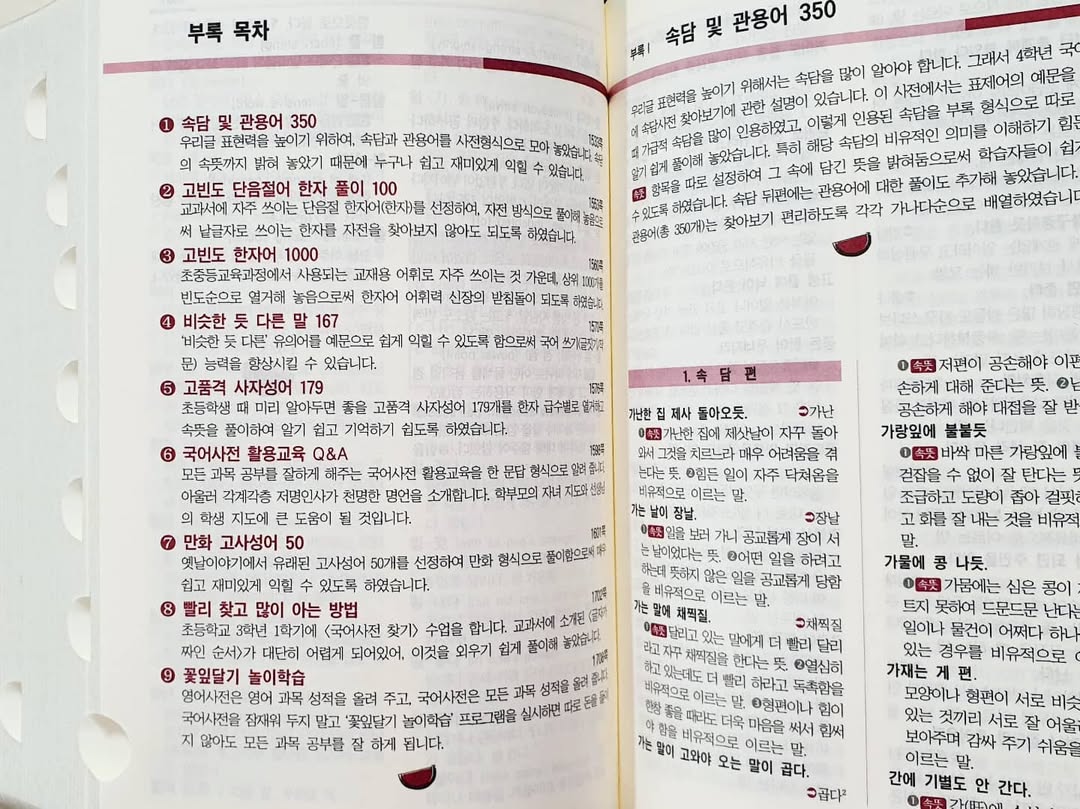 부록 목차
❶ 속담 및 관용어 350
우리글 표현력을 높이기 위하여, 속담과 관용어를 사전형식으로 모아 놓았습니다. 속담
의 속뜻까지 밝혀 놓았기 때문에 누구나 쉽고 재미있게 익힐 수 있습니다.
❷ 고빈도 단음절어 한자 풀이 100
교과서에 자주 쓰이는 단음절 한자어(한자)를 선정하여, 자전 방식으로 풀이해 놓음으로
써 낱글자로 쓰이는 한자를 자전을 찾아보지 않아도 되도록 하였습니다.
❸ 고빈도 한자어 1000
초중등교육과정에서 사용되는 교재용 어휘로 자주 쓰이는 것 가운데, 상위 1000개를
빈도순으로 열거해 놓음으로써 한자어 어휘력 신장의 받침돌이 되도록 하였습니다.
❹ 비슷한 듯 다른 말 167
1570쪽
'비슷한 듯 다른' 유의어를 예문으로 쉽게 익힐 수 있도록 함으로써 국어 쓰기(글짓기/작
문) 능력을 향상시킬 수 있습니다.
❺ 고품격 사자성어 179
1576쪽
초등학생 때 미리 알아두면 좋을 고품격 사자성어 179개를 한자 급수별로 열거하고
속뜻을 풀이하여 알기 쉽고 기억하기 쉽도록 하였습니다.
❻ 국어사전 활용교육 Q&A
모든 과목 공부를 잘하게 해주는 국어사전 활용교육을 한 문답 형식으로 알려 줍니다.
아울러 각계각층 저명인사가 천명한 명언을 소개합니다. 학부모의 자녀 지도와 선생님
의 학생 지도에 큰 도움이 될 것입니다.
❼ 만화 고사성어 50
1601쪽
옛날이야기에서 유래된 고사성어 50개를 선정하여 만화 형식으로 풀이함으로써 매우
쉽고 재미있게 익힐 수 있도록 하였습니다.
❽ 빨리 찾고 많이 아는 방법
1702쪽
초등학교 3학년 1학기에 〈국어사전 찾기〉 수업을 합니다. 교과서에 소개된 〈글자가
짜인 순서〉가 대단히 어렵게 되어있어, 이것을 외우기 쉽게 풀이해 놓았습니다.
❾ 꽃잎달기 놀이학습
영어사전은 영어 과목 성적을 올려 주고, 국어사전은 모든 과목 성적을 올려 줍니다.
국어사전을 잠재워 두지 말고 '꽃잎달기 놀이학습' 프로그램을 실시하면 따로 돈을 들이
지 않아도 모든 과목 공부를 잘 하게 됩니다.
부록 I 속담 및 관용어 350
우리글 표현력을 높이기 위해서는 속담을 많이 알아야 합니다. 그래서 4학년 국어
에 속담사전 찾아보기에 관한 설명이 있습니다. 이 사전에서는 표제어의 예문을
때 가급적 속담을 많이 인용하였고, 이렇게 인용된 속담을 부록 형식으로 따로
알기 쉽게 풀이해 놓았습니다. 특히 해당 속담의 비유적인 의미를 이해하기 힘든
속뜻 항목을 따로 설정하여 그 속에 담긴 뜻을 밝혀둠으로써 학습자들이 쉽게
수 있도록 하였습니다. 속담 뒤편에는 관용어에 대한 풀이도 추가해 놓았습니다.
관용어(총 350개)는 찾아보기 편리하도록 각각 가나다순으로 배열하였습니다
1. 속 담 편
가난한 집 제사 돌아오듯. ➲가난
❶속뜻 가난한 집에 제삿날이 자꾸 돌아
와서 그것을 치르느라 매우 어려움을 겪
는다는 뜻. ❷힘든 일이 자주 닥쳐옴을
비유적으로 이르는 말.
가는 날이 장날. ➲장날
❶속뜻 일을 보러 가니 공교롭게 장이 서
는 날이었다는 뜻. ❷어떤 일을 하려고
하는데 뜻하지 않은 일을 공교롭게 당함
을 비유적으로 이르는 말.
가는 말에 채찍질. ➲채찍질
❶속뜻 달리고 있는 말에게 더 빨리 달리
라고 자꾸 채찍질을 한다는 뜻. ❷열심히
하고 있는데도 더 빨리 하라고 독촉함을
비유적으로 이르는 말. ❸형편이나 힘이
한창 좋을 때라도 더욱 마음을 써서 힘써
야 함을 비유적으로 이르는 말.
가는 말이 고와야 오는 말이 곱다.
➲곱다²
❶속뜻 저편이 공손해야 이편
손하게 대해 준다는 뜻. ❷남
공손하게 해야 대접을 잘 받
가랑잎에 불붙듯
❶속뜻 바싹 마른 가랑잎에 불
걷잡을 수 없이 잘 탄다는 뜻
조급하고 도량이 좁아 걸핏하
고 화를 잘 내는 것을 비유적
말.
가물에 콩 나듯.
❶속뜻 가뭄에는 심은 콩이
트지 못하여 드문드문 난다는
일이나 물건이 어쩌다 하나
있는 경우를 비유적으로
가재는 게 편.
모양이나 형편이 서로 비슷
있는 것끼리 서로 잘 어울
보아주며 감싸 주기 쉬움을
이르는 말.
간에 기별도 안 간다.
❶속뜻 간(肝)에